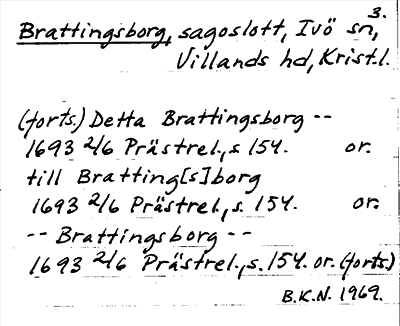 3.
Brattingsborg, sagoslott, Ivö sn,
Villands hd, Krist.l.
(forts.) Detta Brattingsborg --
1693 2/6 Prästrel., s. 154. or.
till Bratting[s]borg
1693 2/6 Prästrel., s. 154. or.
-- Brattingsborg --
1693 2/6 Prästrel., s. 154. or. (forts.)
B.K.N. 1969.